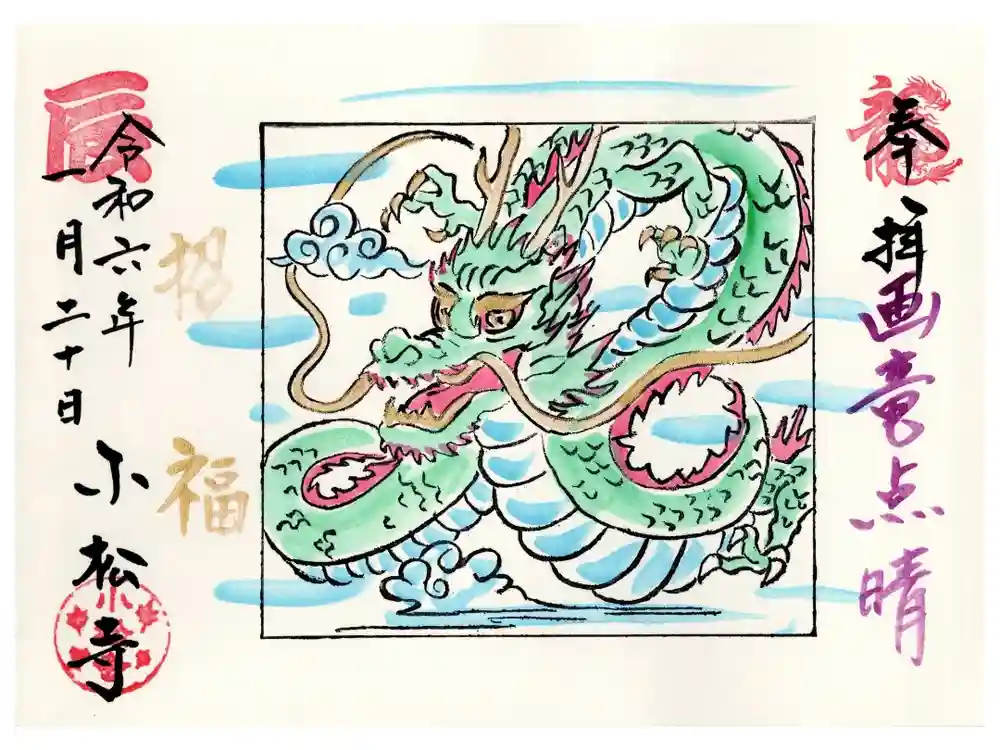 奉拝
画竜点晴
龍
招福
辰
令和六年
一月二十日
小松寺